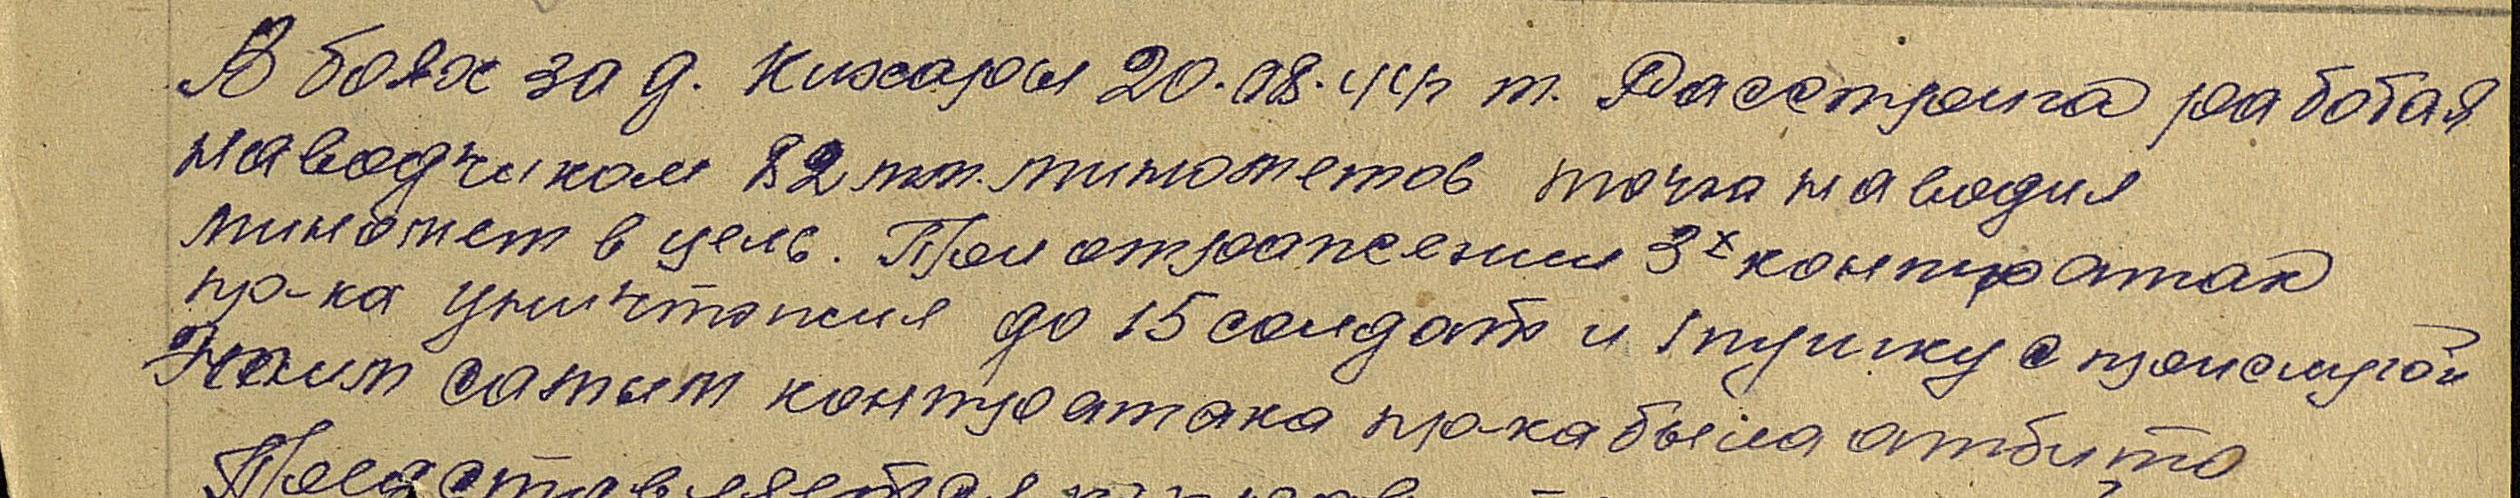 В боях за д. Кихары 20.08.44г т. Расстрига работая
наводчиком 82 мм. минометов точно наводил
миномет в цель. При отражении 3х контратак
пр-ка уничтожил до 15 солдат и 1 пушку с прислугой
Тем самым контратака пр-ка была атбито
Представляется к прав